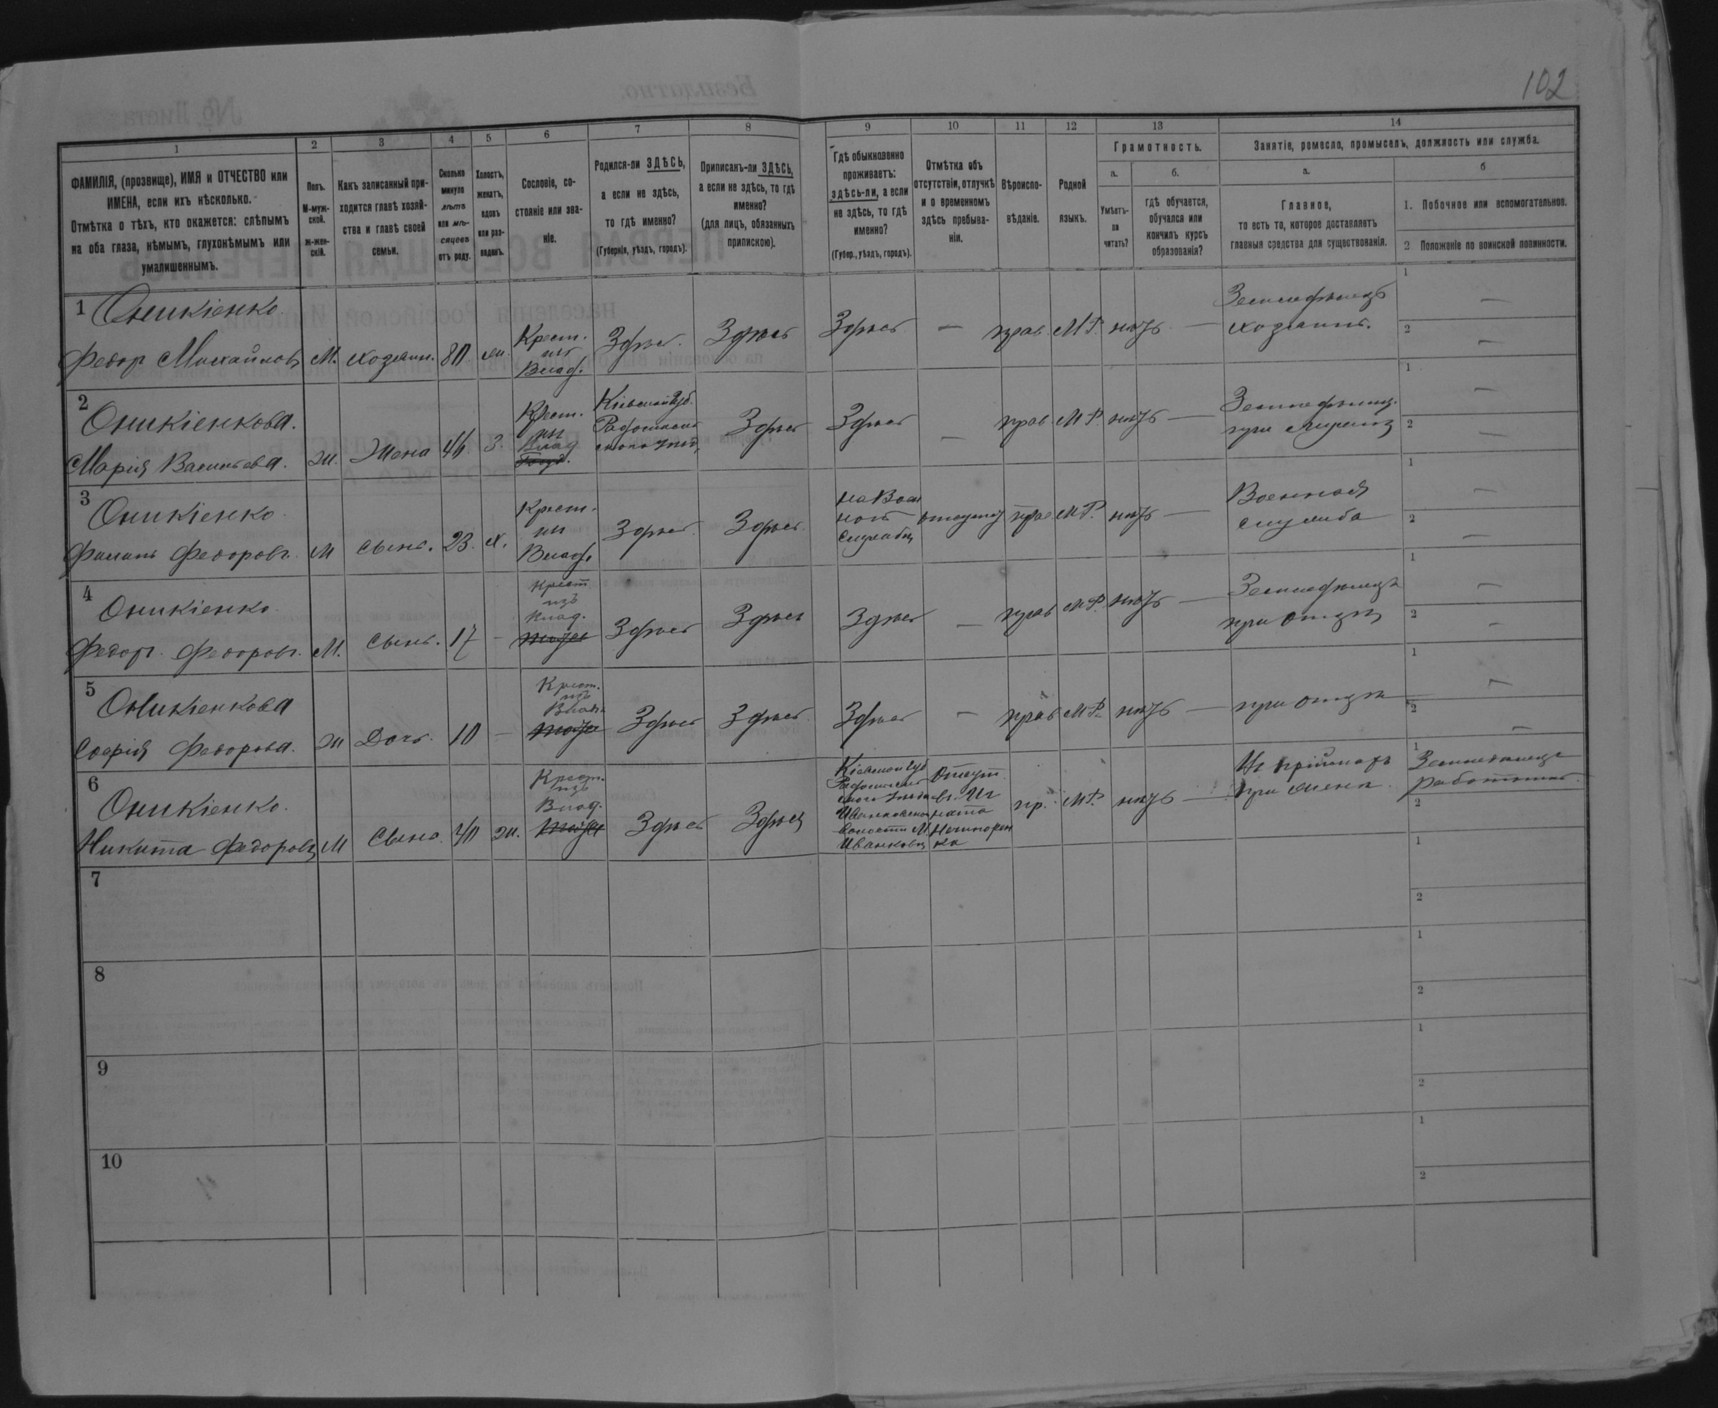 102
1 2 3 4 5 6 7 8 9 10 11 12 13 14
ФАМИЛІЯ, (прозвище), ИМЯ и ОТЧЕСТВО или ИМЕНА, если ихъ нѣсколько.
Отмѣтка о тѣхъ, кто окажется: слѣпымъ на оба глаза, нѣмымъ, глухонѣмымъ или умалишеннымъ.
Полъ.
М-мужской.
ж-женскій.
Какъ записанный приходится главѣ хозяйства и главѣ своей семьи.
Сколько минуло лѣтъ или мѣсяцевъ отъ роду.
Холостъ, женатъ, вдовъ или разведенъ.
Сословіе, состояніе или званіе.
Родился-ли ЗДѢСЬ, а если не здѣсь, то гдѣ именно?
(Губернія, уѣздъ, городъ).
Приписанъ-ли ЗДѢСЬ, а если не здѣсь, то гдѣ именно?
(для лицъ, обязанныхъ припискою).
Гдѣ обыкновенно проживаетъ: здѣсь-ли, а если не здѣсь, то гдѣ именно?
(Губер., уѣздъ, городъ).
Отмѣтка объ отсутствіи, отлучкѣ и о временномъ здѣсь пребываніи.
Вѣроисповѣданіе.
Родной языкъ.
Грамотность.
а.
Умѣетъ-ли читать?
б.
гдѣ обучается, обучался или кончилъ курсъ образованія?
Занятіе, ремесло, промыселъ, должность или служба.
а.
Главное,
то есть то, которое доставляетъ главныя средства для существованія.
б
1. Побочное или вспомогательное.
2 Положеніе по воинской повинности.
1 Оникіенко
Федор Михайлов М. хозяин. Крест. из Влад. Здѣсь Здѣсь Здѣсь — прав. М.Р. нѣтъ — Земледѣлецъ хозяинъ. 1 — 2 —
2 Оникіенкова.
Марія Васильева. ж. Жена З. Крест. из Влад. Кіевской Губ. Здѣсь Здѣсь — прав. М.Р. нѣтъ — 1 — 2 —
3 Оникіенко
Федоров. М сынъ. 23. х. Крест. из Влад. Здѣсь Здѣсь на Воен ной службѣ прав. М.Р. нѣтъ — Военная служба 1 — 2 —
4 Оникіенко
Федор Федоров. М. сынъ. 17 — Крест из Влад. Здѣсь Здѣсь Здѣсь — прав М.Р. нѣтъ — Земледѣлецъ при отцѣ 1 — 2 —
5 Оникіенкова
Софія Федорова. ж Дочь. 10 — Крест. из Влад. Здѣсь Здѣсь Здѣсь — прав М.Р. нѣтъ — при отцѣ 1 — 2 —
6 Оникіенко.
Никита Федоровъ М Сынъ ж. Крест. из Влад. Здѣсь Здѣсь Кіевской Губ пр. М.Р. нѣтъ — 1 2
7 1 2
8 1 2
9 1 2
10 1 2